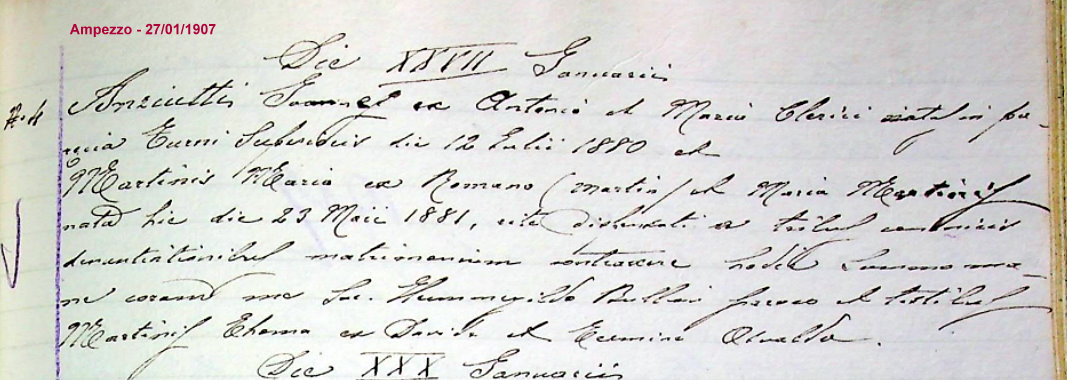 Ampezzo - 27/01/1907
Die XXVII Januarii
N. 4 Anziutti Joannes ex Antonio et Maria Clerici natus in pa-
rocia Furni Superioris die 12 Julii 1880 et
Martinis Maria ex Romano (Martin) et Maria Martinis
nata hic die 23 Maii 1881, rite dispensati a tribus canonicis
denuntiationibus matrimonium contraxere hodie summo ma-
ne coram me Sac. paroco et testibus
Martinis Thoma ex Davide et Osvaldo.
Die XXX Januarii